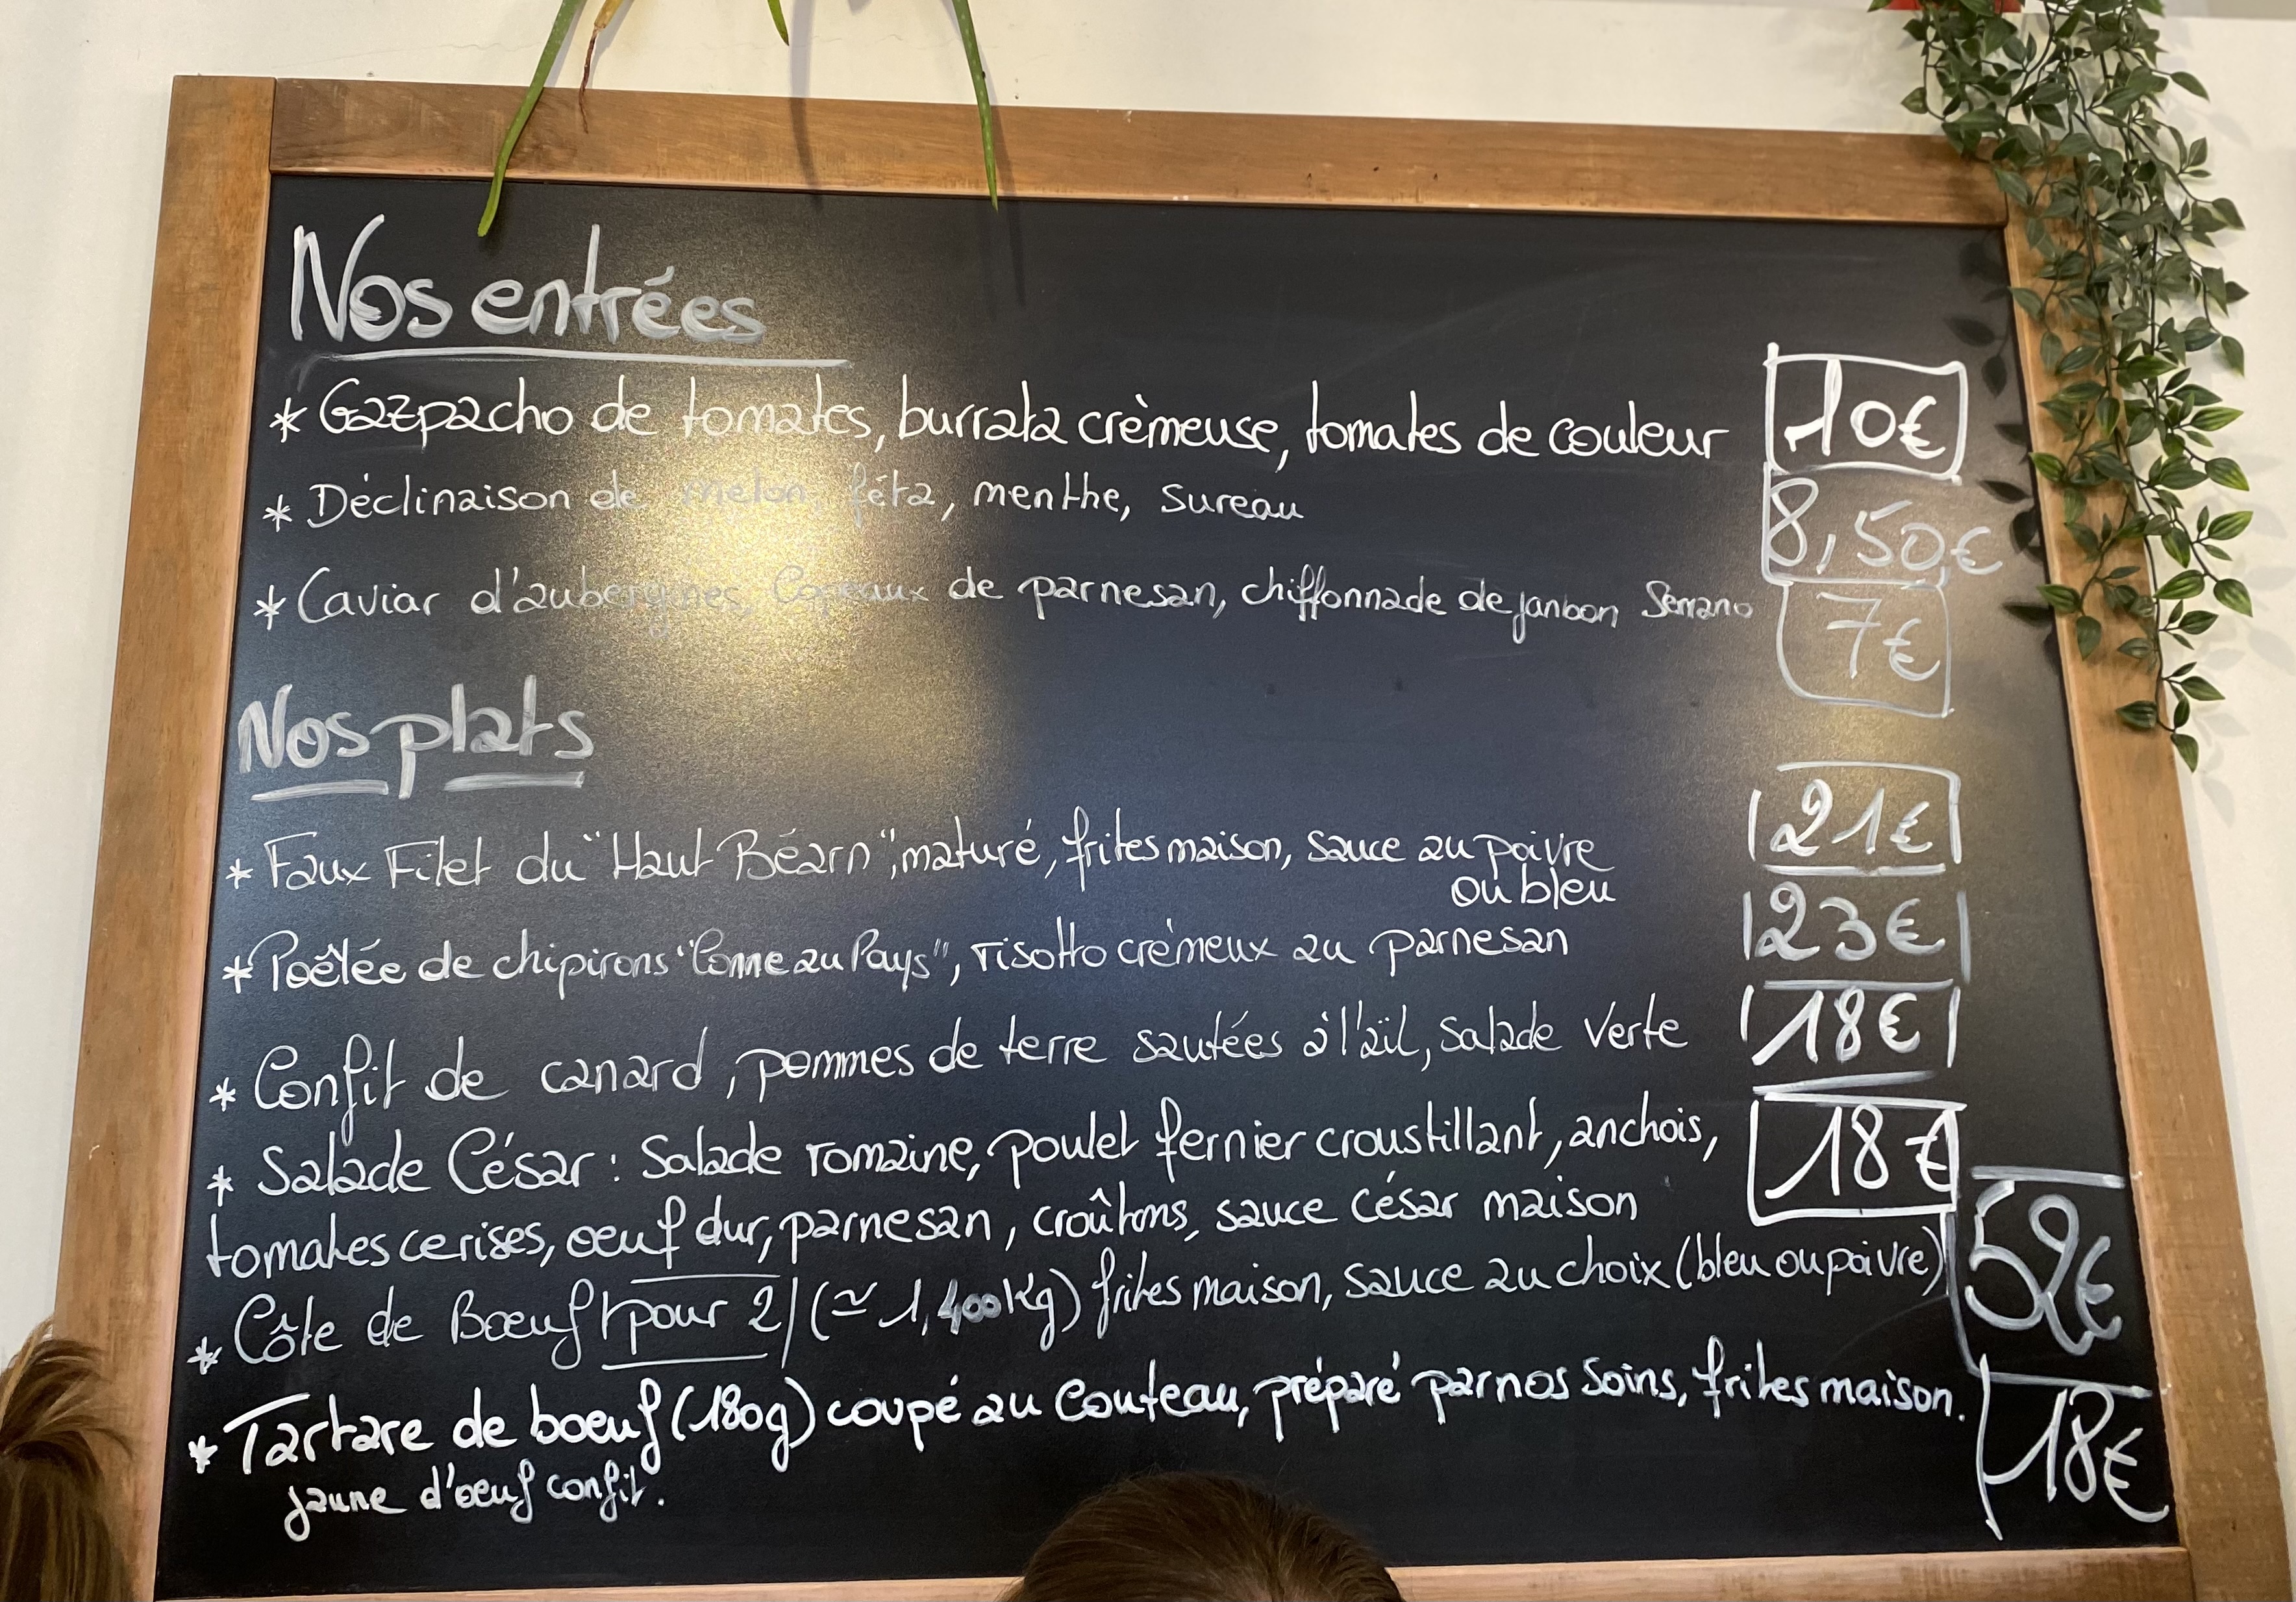 Nos entrées
* Gazpacho de tomates, burrata crèmeuse, tomates de couleur 10€
* Déclinaison de melon, féta, menthe, sureau 8,50€
* Caviar d'aubergines, Copeaux de parnesan, chiffonnade de janbon Serrano 7€
Nos plats
* Faux Filet du "Haut Béarn", maturé, frites maison, sauce au poivre 21€
ou bleu
* Poêlée de chipirons "Comme au Pays", risotto crèmeux au parnesan 23€
* Confit de canard, pommes de terre sautées à l'aïl, salade verte 18€
* Salade César : Salade romaine, poulet fernier croustillant, anchois, 18€
tomates cerises, oeuf dur, parnesan, croûtons, sauce césar maison
* Côte de Boeuf pour 2 (≃ 1,400Kg) frites maison, sauce au choix (bleu ou poivre) 52€
* Tartare de boeuf (180g) coupé au Couteau, préparé par nos soins, frites maison. 18€
jaune d'oeuf confit.